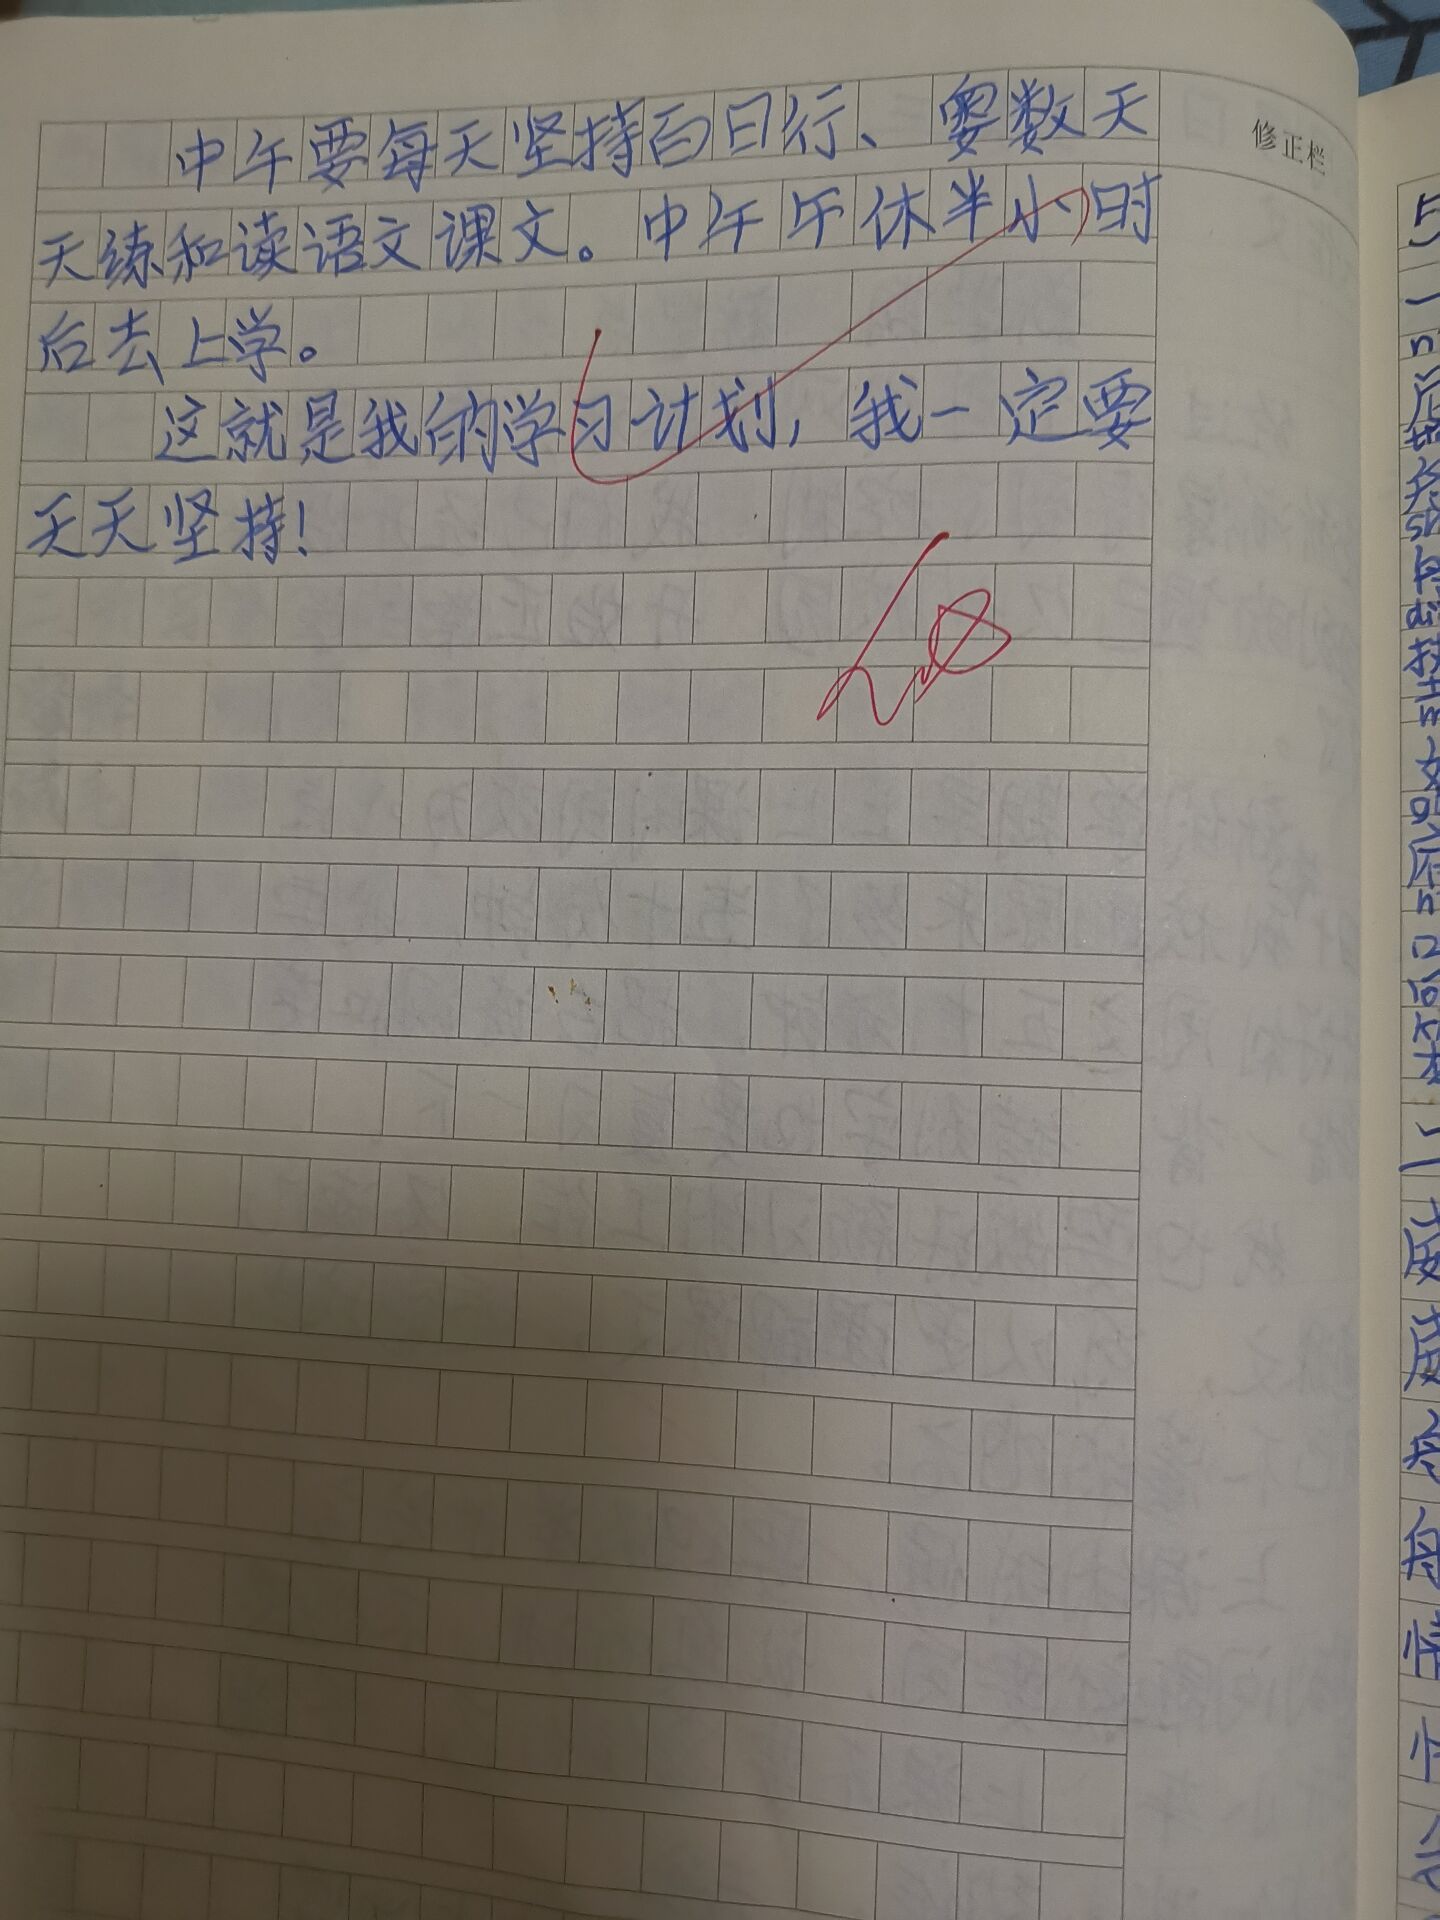 中午要每天坚持百日行、奥数天
天练和读语文课文。中午午休半小时
后去上学。
这就是我的学习计划,我一定要
天天坚持!
修正栏